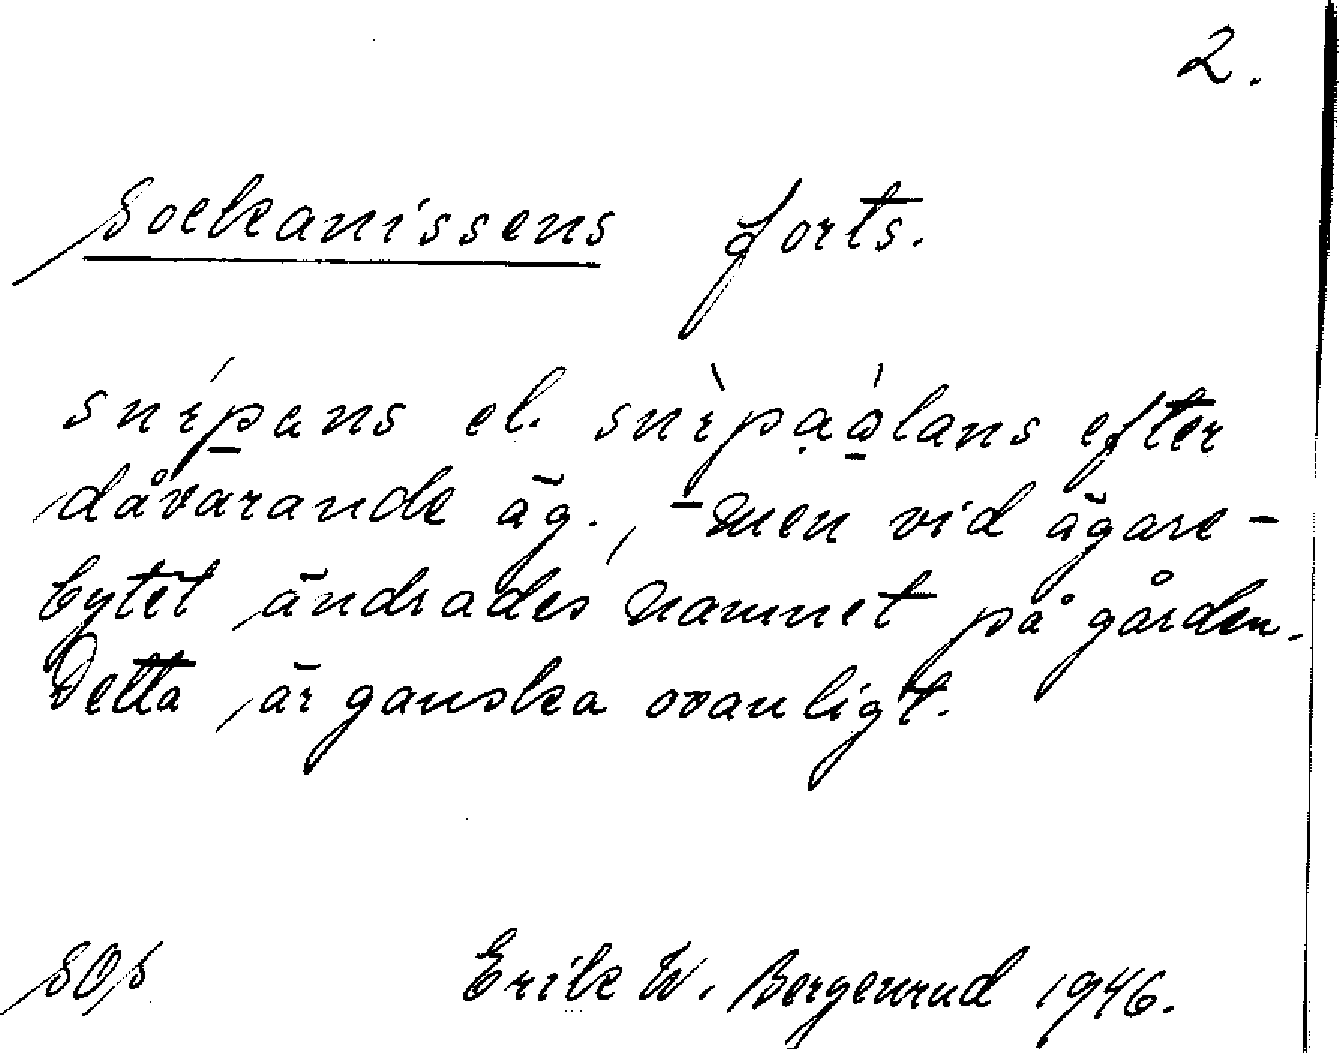 2.
Sockanissens forts.
snípans el. snìpaálans efter
dåvarande äg., men vid ägare-
bytet ändrades namnet på gården.
Detta är ganska ovanligt.
SOS Erik W. Bergenrud 1946.